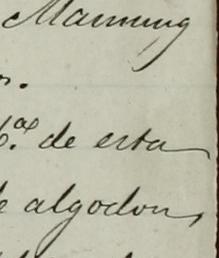 Manning
n.
6.ª de esta
de algodon,